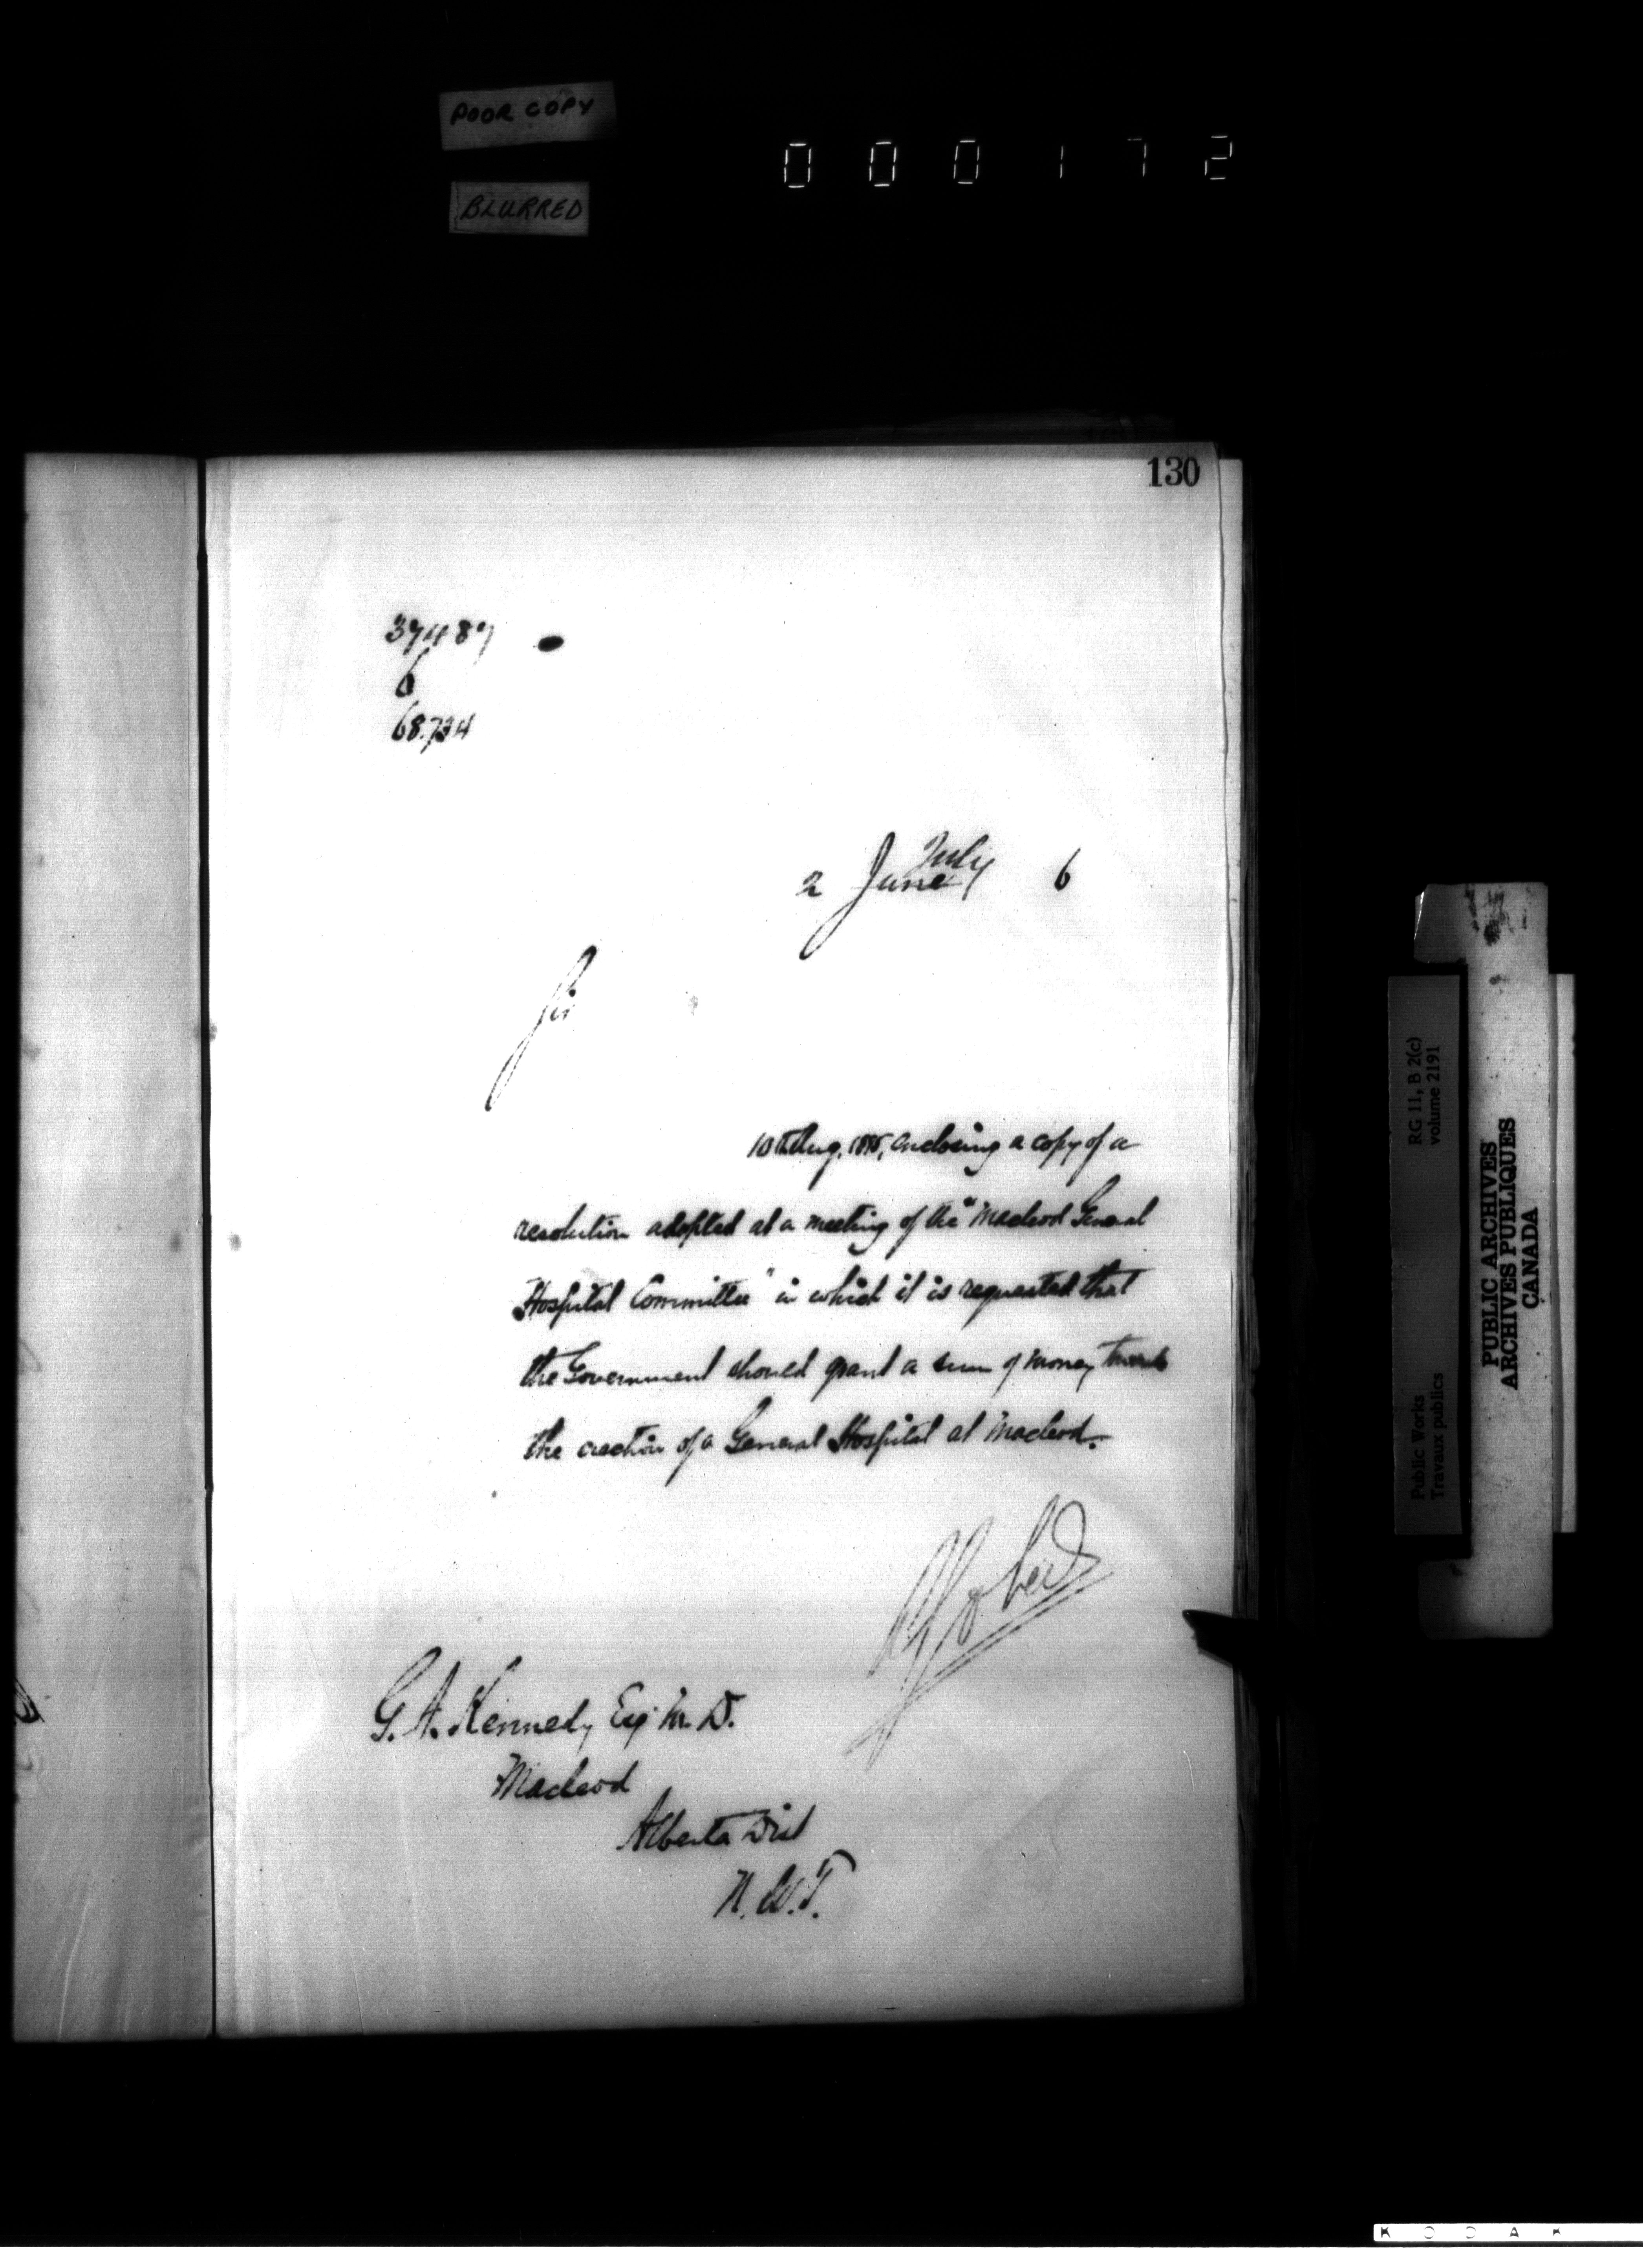 POOR COPY
000172
BLURRED
130
37487
6
68.734
July
2 June 6
Sir
10th Aug. 1895, enclosing a copy of a
resolution adopted at a meeting of the "Macleod General
Hospital Committee" in which it is requested that
the Government should grant a sum of money towards
the erection of a General Hospital at Macleod.
G. A. Kennedy Esq. M. D.
Macleod
Alberta Dist
N. W. T.
RG 11, B 2(c)
volume 2191
Public Works
Travaux publics
PUBLIC ARCHIVES
ARCHIVES PUBLIQUES
CANADA
KODAK